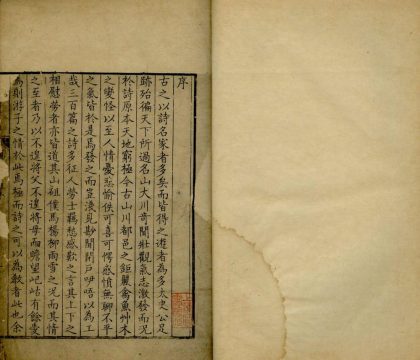 序
古之以詩名家者多矣而皆得之遊者為多太史公足
跡殆徧天下所過名山大川奇聞壯觀氣志激發而况
於詩原本天地窮極今古山川都邑之鉅麗禽魚艸木
之變怪以至人情憂愁愉佚可喜可愕感憤無聊不平
之氣皆於是焉發之而豈淺見尠聞閉戶咿唔以為工
哉三百篇之詩多征人勞士羇愁感歎之言其上下之
相慰勞者亦皆道其山砠僕馬楊柳雨雪之况而其情
之至者乃以不遑將父不遑將母而瞻望屺岵有餘愛
焉則游子之情於此為極而詩之可以為教者此也余